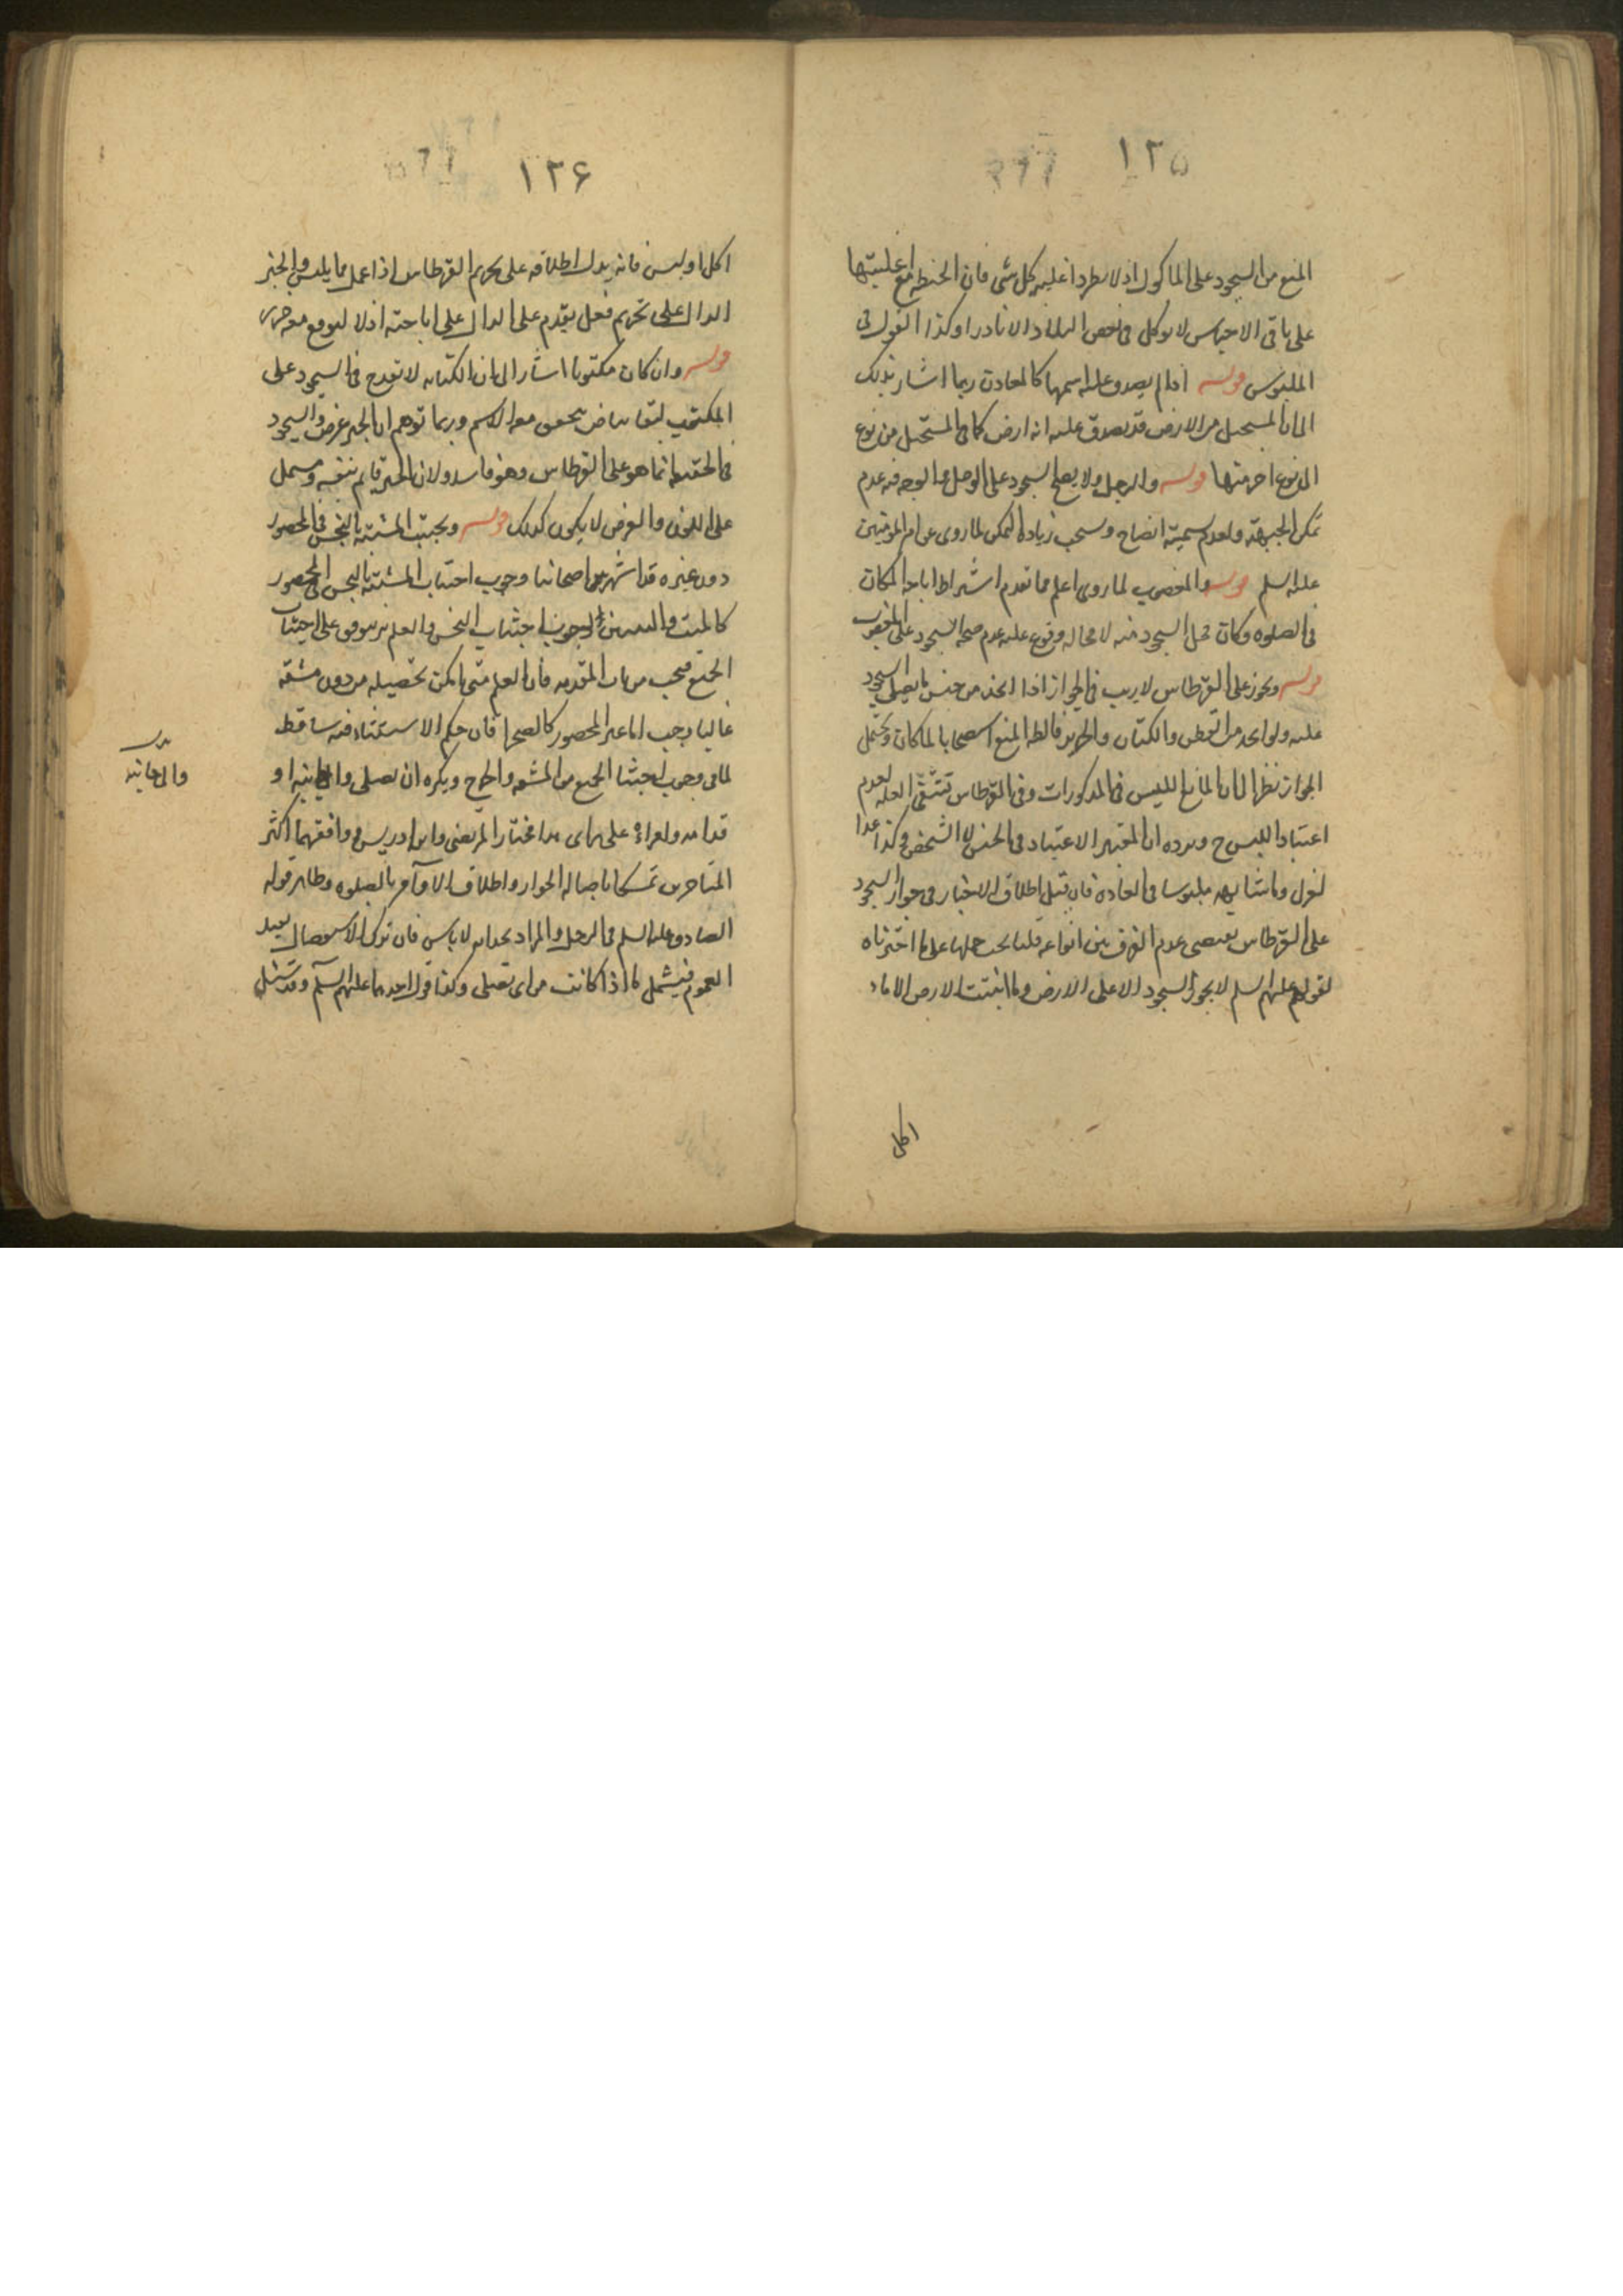 ١٢٥
المنع من السجود على الماكول اذ لا يطرد اغلبيه كل شى فان الحنطه مع اغلبيتها
على باقى الاجناس لا توكل فى بعض البلاد الا نادرا وكذا القول فى
الملبوس قوله اذا لم يصدق عليه اسمها كالمعادن ربما اشار بذلك
الى ان المستحيل من الارض قد يصدق عليه انه ارض كما فى المستحيل من نوع
الى نوع اخر منها قوله والوحل ولا يصح السجود على الوحل والوجه فيه عدم
تمكن الجبهة ولعدم تسميته ايضا ح ويستحب زيادة التمكن لما روى عن امير المومنين
عليه السلم قوله والمغصوب لما روى اعلم مما تقدم اشتراط اباحة المكان
فى الصلوه وكان محل السجود منه لا محاله وتفرع عليه عدم صحة السجود على المغصوب
قوله ويجوز على القرطاس لا ريب فى الجواز اذا اتخذ من جنس ما يصلى السجود
عليه ولو اتخذ من القطن والكتان والحرير فالظ المنع استصحابا لما كان ويحتمل
الجواز نظرا الى ان المانع اللبس فى المذكورات وفى القرطاس تنتفى العله لعدم
اعتياد اللبس ح ويرده ان المعتبر الاعتياد فى الجنس لا الشخص وكذا عدا
لغزل وما شابهه ملبوسا فى العاده فان قيل اطلاق الاخبار فى جواز السجود
على القرطاس يقتضى عدم الفرق بين انواعه قلنا يجب حملها على ما اخترناه
لقولهم عليهم السلم لا يجوز السجود الا على الارض وما انبتت الارض الا ما
اكل
١٢۶
اكل او لبس فانه يدل اطلاقه على تحريم القرطاس اذا عمل مما يلبس والخبر
الدال على تحريم فعل يقدم على الدال على اباحته اذ لا
قوله وان كان مكتوبا اشار الى ان الكتابه لا تقدح فى السجود على
المكتوب لبقا بياض يتحقق معه الاسم وربما توهم ان الحبر عرض والسجود
فى الحقيقه انما هو على القرطاس وهو فاسد ولان الحبر قايم بنفسه ومشتمل
على اللون والعرض لا يكون كذلك قوله ويجتنب المشتبه بالنجس فى المحصور
دون غيره قد اشتهر بين اصحابنا وجوب اجتناب المشتبه بالنجس فى المحصور
كالبيت والبيتين لوجوب اجتناب النجس والعلم به يتوقف على اجتناب
الجميع فيجب من باب المقدمه فان العلم متى امكن تحصيله من دون مشقه
غالبا وجب اما غير المحصور كالصحرا فان حكم الاشتباه فيه ساقط
لما فى وجوب اجتناب الجميع من المشقه والحرج ويكره ان يصلى والى جانبه او
قدامه ولو امراه على راى هذا مختار المرتضى وابن ادريس ووافقهما اكثر
المتاخرين تمسكا باصالة الجواز واطلاق الاوامر بالصلوه وظاهر قوله
الصادق عليه السلم فى الرجل والمراه بحذاه لا باس فان ترك الاستفصال يفيد
العموم فيشمل ما اذا كانت مراه تصلى وكذا قول احدهما عليهم السلم وقد سئل
والى جانبه